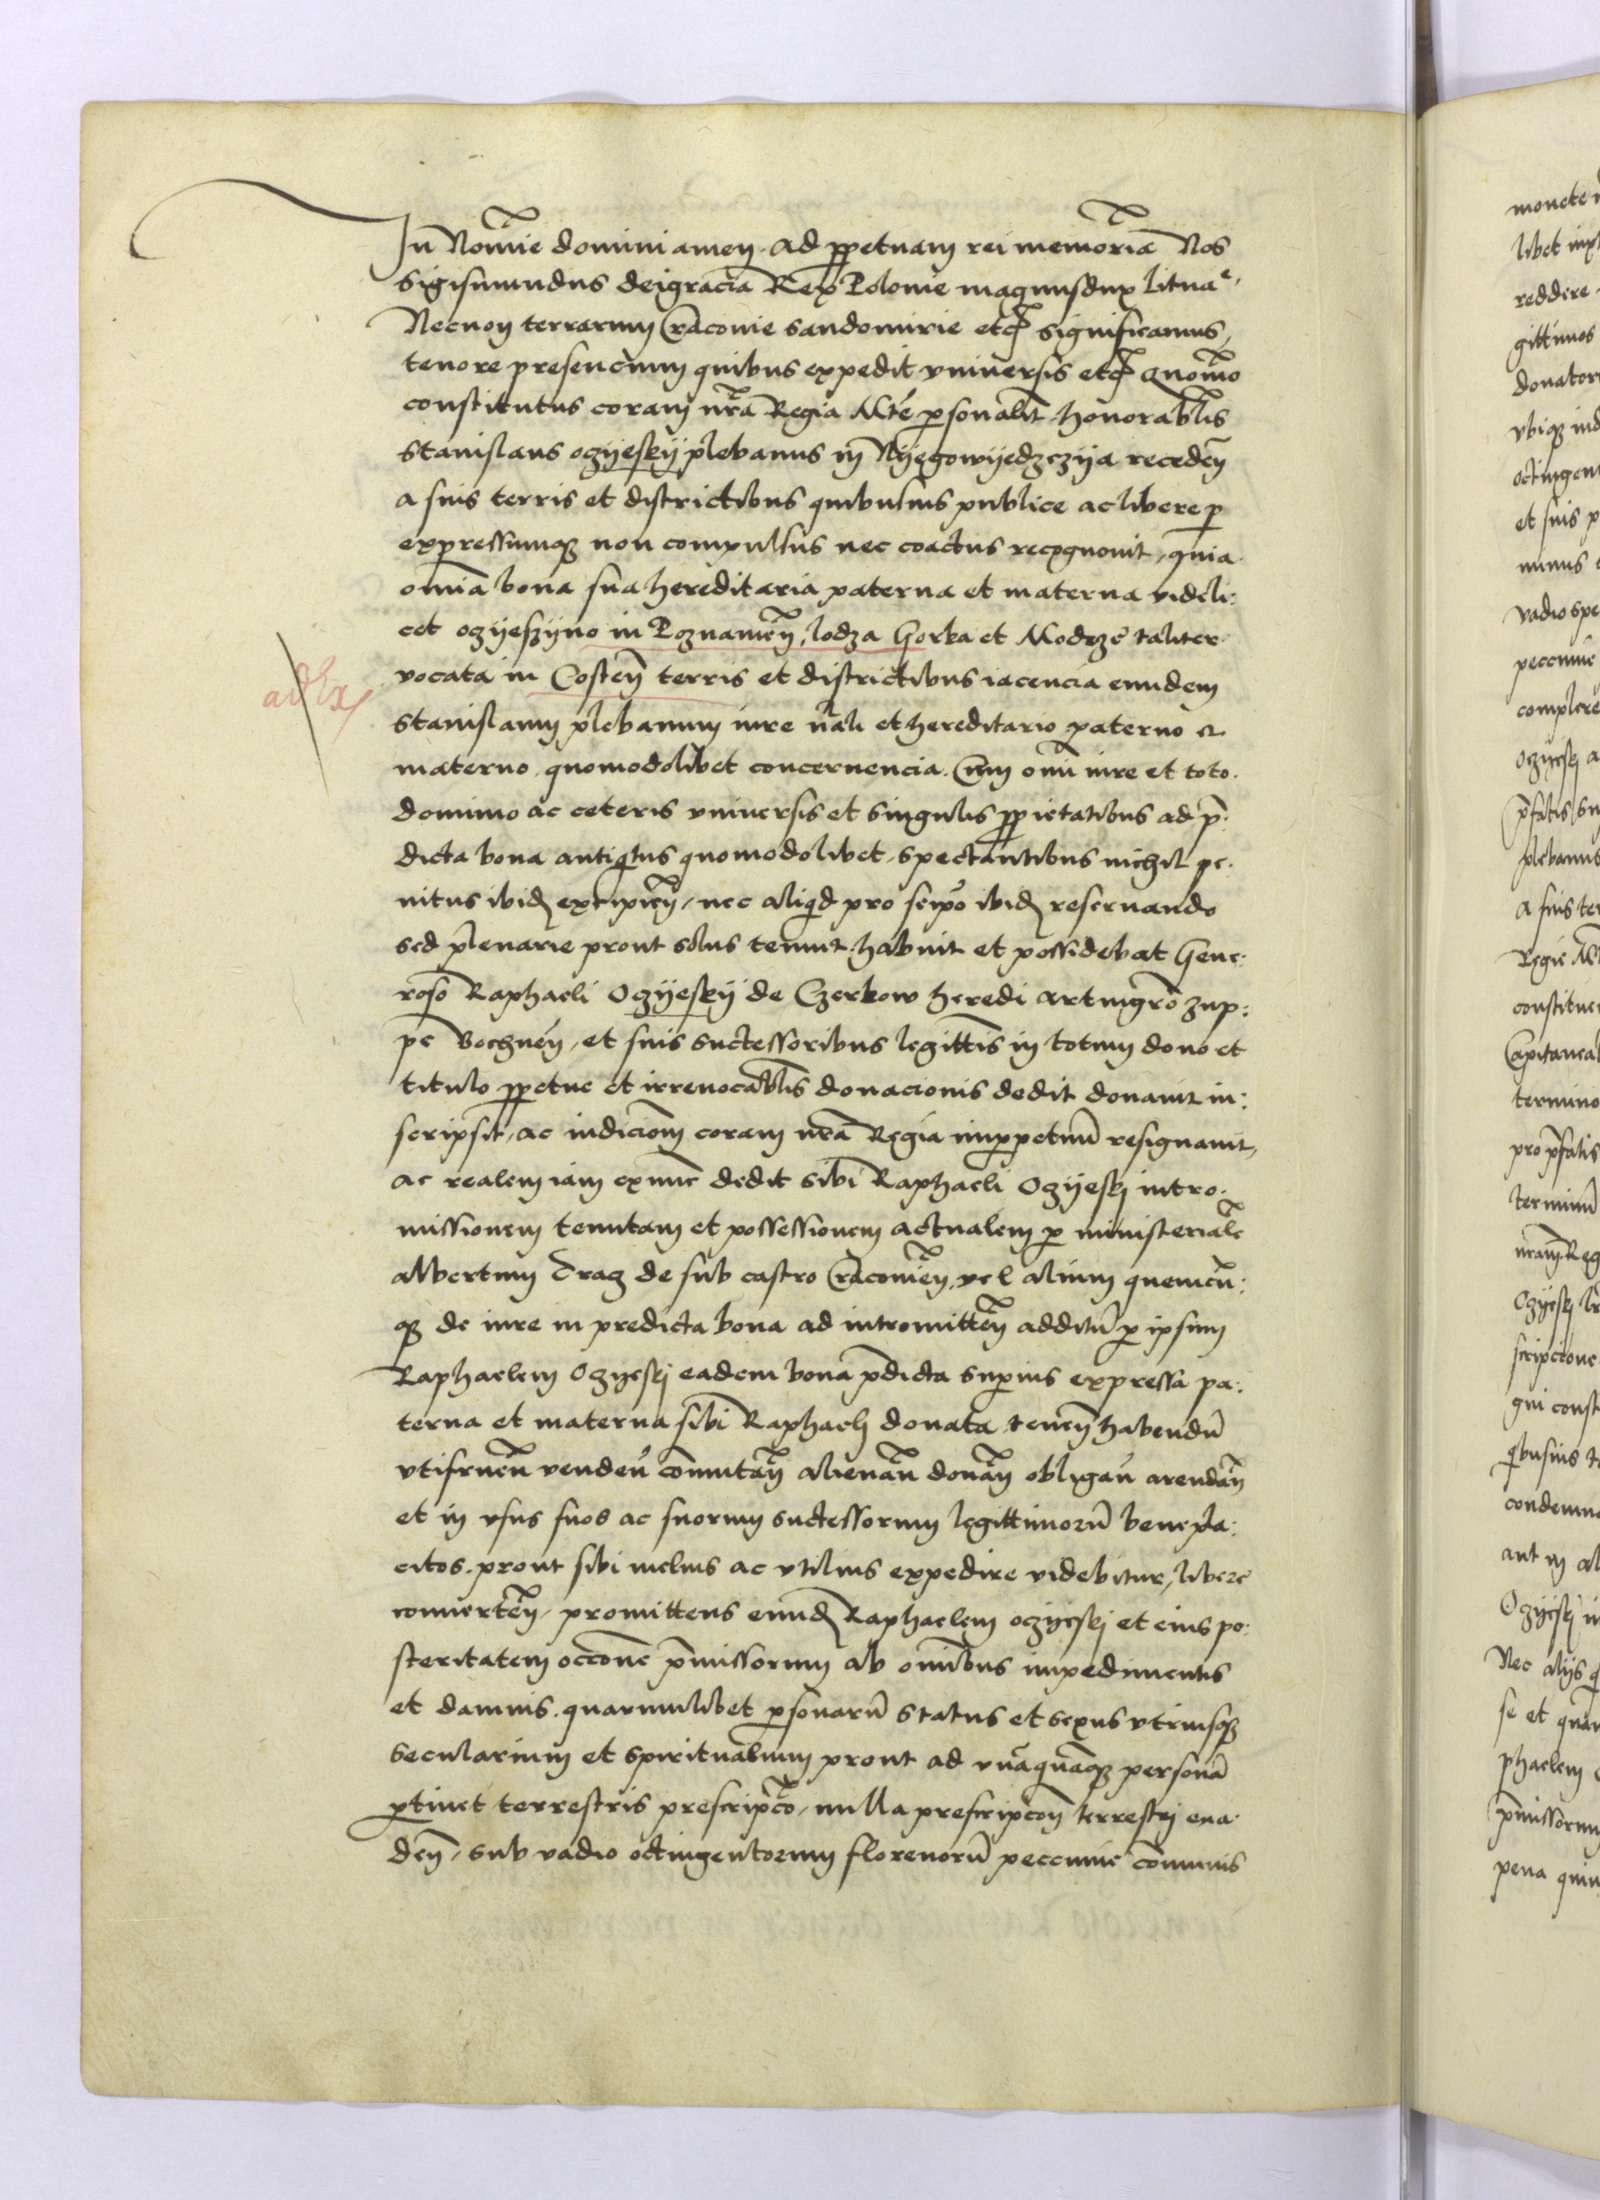 In No͞mie domini amen. Ad ꝑpetuam rei memoria͞ Nos
Sigismundus dei gracia Rex Polonie magnus dux Lituae.
Necnon terrarum Cracouie Sandomirie etc̃ significamus,
tenore presencium quibus expedit vniuersis etc̃ quo͞mo
constitutus coram nr̃a Regia Mt̃e ꝑsonalit̃ honorabl̃is
Stanislaus ozijeskij plebanus in Nijegowijedzczija receden̄
a suis terris et districtibus quibusuis publice ac libere ꝑ
expressumqꝫ non compulsus nec coactus recognouit, quia
om̄ia bona sua hereditaria paterna et materna videli:
cet ozijeszijno in Poznanien̄, lodza Gorka et Modrze taliter
vocata in Costen̄ terris et districtibus iacencia eundem
ad Ex
Stanislaum plebanum iure nr̃ali et hereditario paterno et
materno quomodolibet concernencia. Cum om̄i iure et toto
dominio ac ceteris vniuersis et singulis ꝓprietatibus ad p̄:
dicta bona antiqtus quomodolibet spectantibus nichil pe:
nitus ibidꝫ excipien̄, nec aliqd pro seipo̅ ibidꝫ reseruando
sed plenarie prout solus tenuit habuit et possidebat Gene:
roso Raphaeli Ozijeskij de Czerkow heredi arthugro͞ zup:
pe Bochnen̄, et suis successoribus legittīs in totum dono et
titulo ꝑpetue et irreuocabl̃is donacionis dedit donauit in:
scripsit, ac in dicio͞m coram nr̃a Regia imꝑpetuū resignauit,
ac realem iam exnunc dedit sibi Raphaeli Ozijeskj intro:
missionem tenutam et possessionem actualem ꝑ ministeriale͞
albertum Drag de sub castro Cracouien̄, vel alium quemcū:
qꝫ de iure in predicta bona ad intromitten̄ additū ꝑ ipsum
Raphaelem Ozijeskj eadem bona p̄dicta suꝑius expressa pa:
terna et materna sibi Raphaeli donata tenen̄ habendū
vtifruen̄ venden̄ co͞mutan̄ alienan̄ donan̄ obligan̄ arendan̄
et in vsus suos ac suorum successorum legittimorū benepla:
citos. prout sibi melius ac vtilius expedire videbitur, libere
conuerten̄, promittens eundꝫ Raphaelem ozijeskj et eius po:
steritatem occo͞ne p̄missorum ab om̄ibus impedimentis
et damnis. quarumlibet ꝑsonarū status et sexus vtriusqꝫ
secularium et spiritualium prout ad vnāquāqꝫ personā
ꝑtinet terrestris prescripco͞, nulla prescripcon̄ terrestrj eua:
den̄, sub vadio octingentorum florenorū peccunie co͞munis
monete
reddere
donator
et suis p
nunus
vadio spe
peccunie
complere
Ozijeskj a
p̄fatis su
plebanus
a suis ter
Regie Mt
constitue
Capitanea
termino
pro p̄fatis
terminū
nr̃am Reg
Ozijeskj
scripcione
qui const
qbusuis t
condemna
aut in al
Ozijeskj in
Nec alijs q
se et quam
phaelem
p̄missorum
pena quin